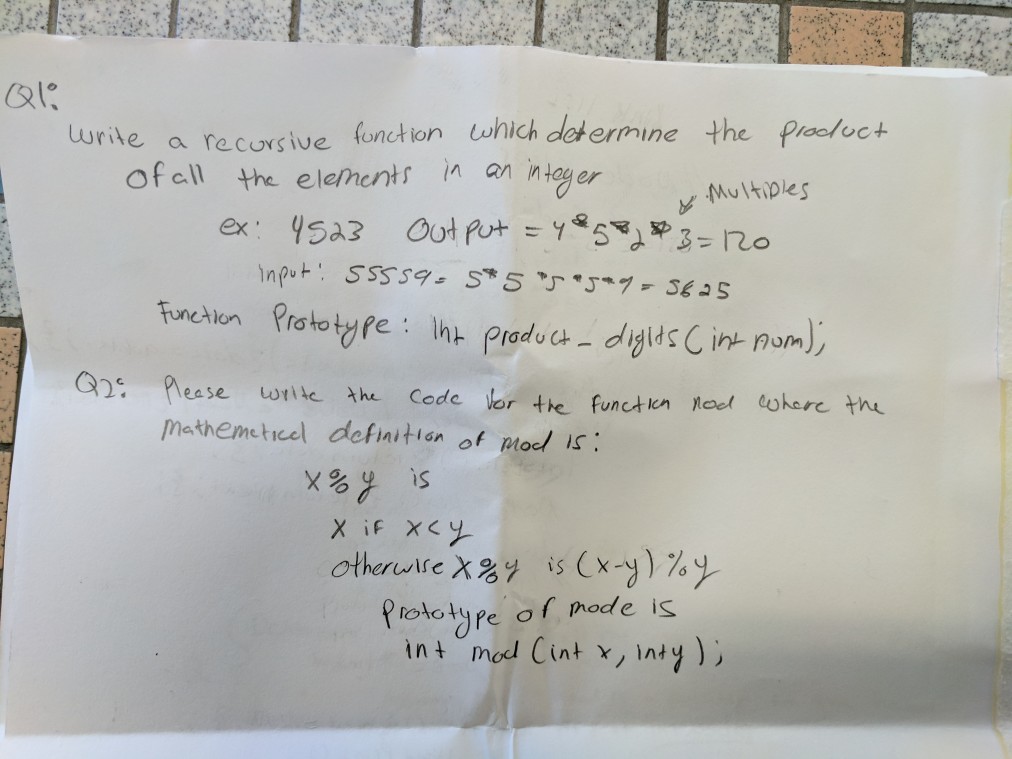 Q1:
Write a recursive function which determine the product
of all the elements in an integer
Multiples
ex: 4523 Output = 4 * 5 * 2 * 3 = 120
input: 55559 = 5*5*5*5*9 = 5625
Function Prototype: int product_digits(int num);
Q2: Please write the code for the function mod where the
mathemetical definition of mod is:
x%y is
x if x<y
otherwise x%y is (x-y)%y
Prototype of mode is
int mod (int x, int y);